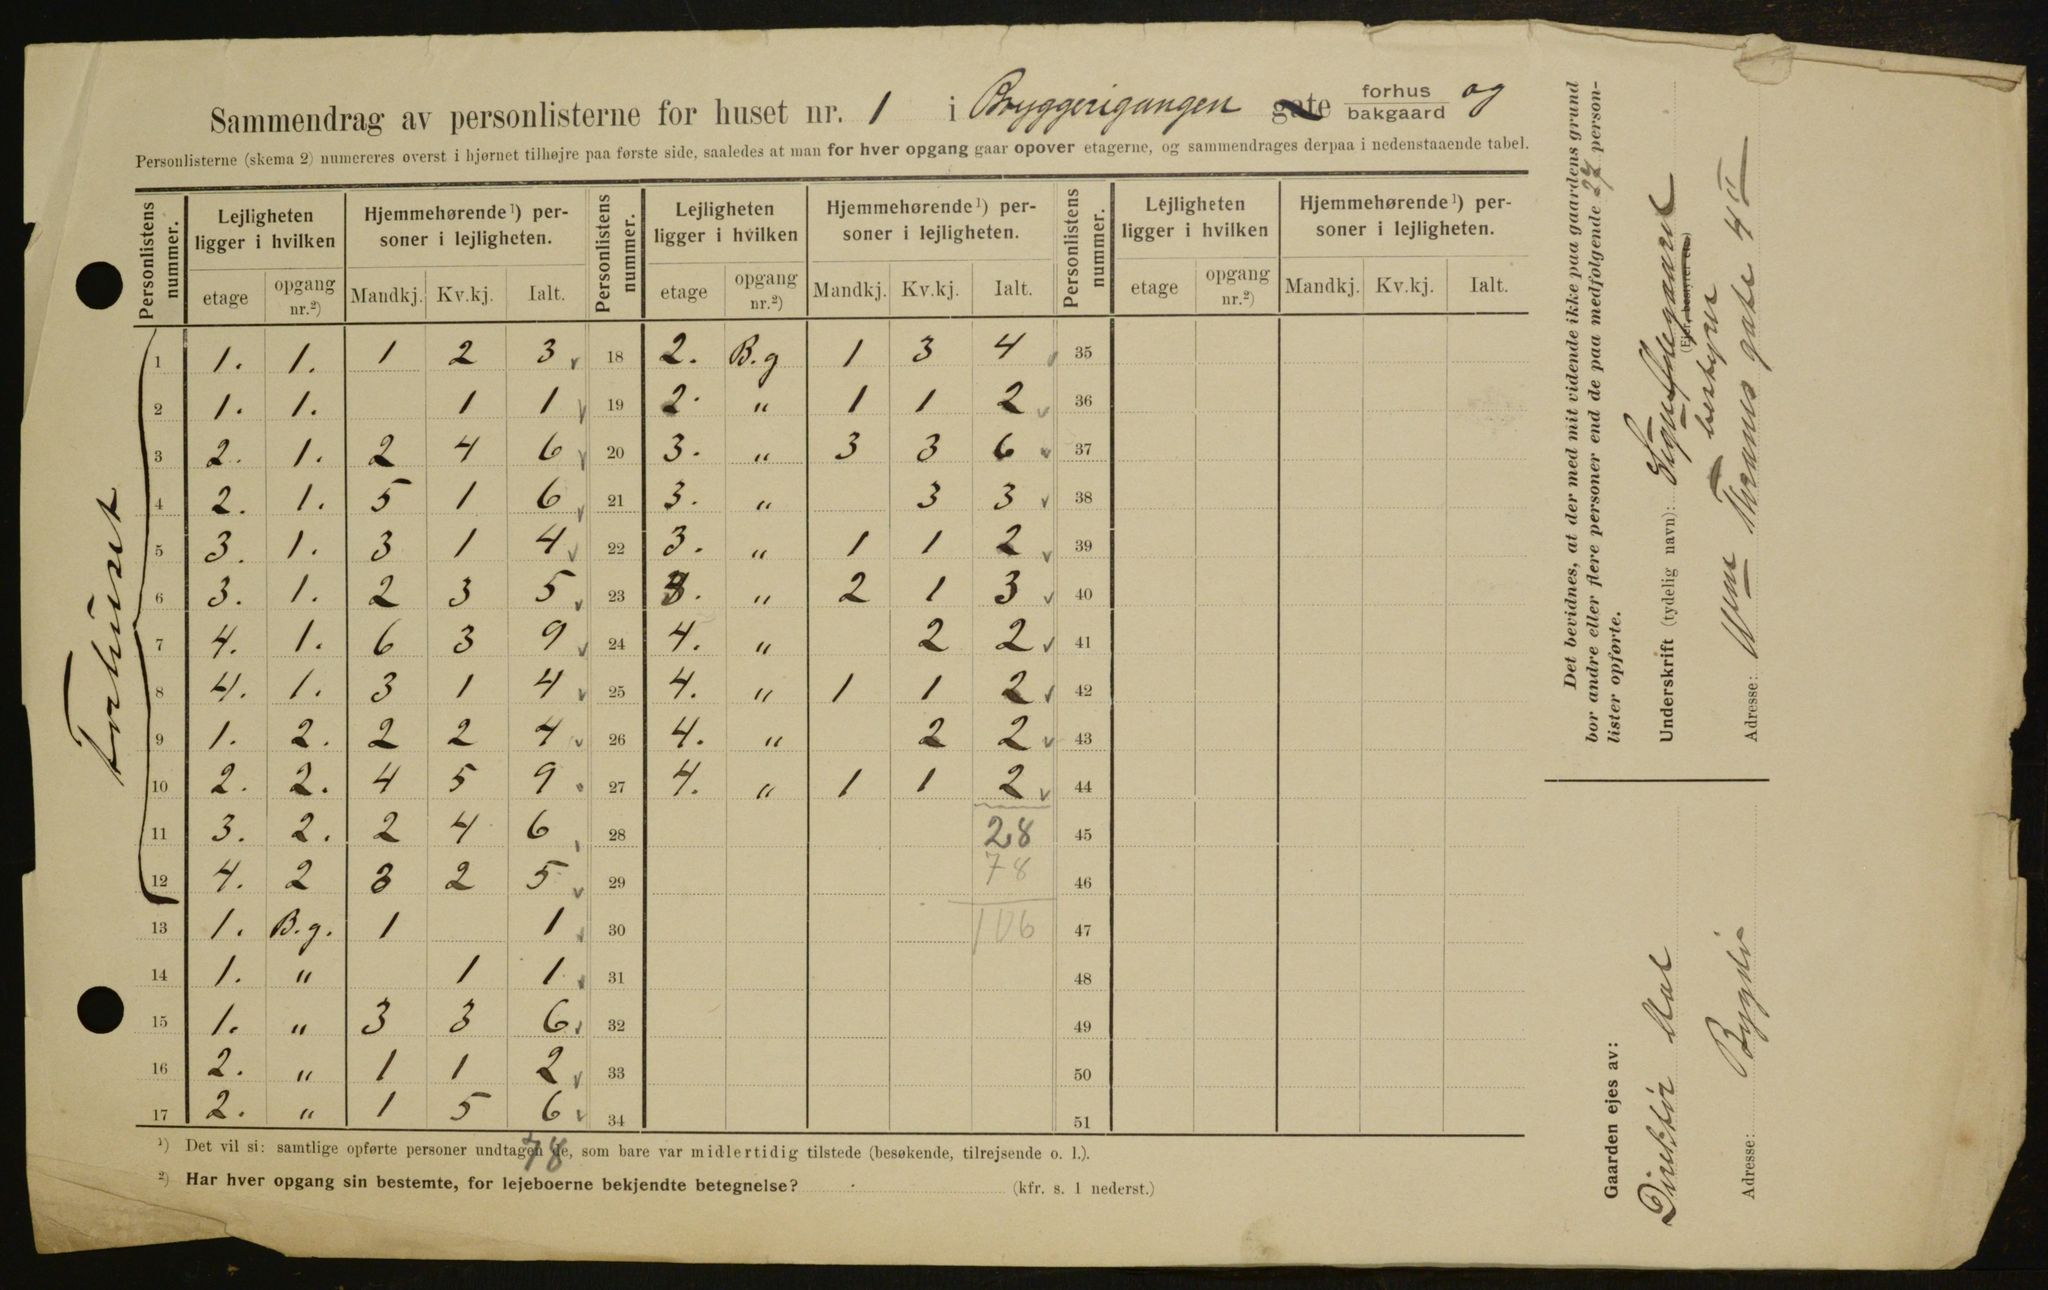 Sammendrag av personlisterne for huset nr. 1 i Bryggerigangen gate forhus bakgaard og
Personlisterne (skema 2) numereres øverst i hjørnet tilhøjre paa første side, saaledes at man for hver opgang gaar opover etagerne, og sammendrages derpaa i nedenstaaende tabel.
Personlistens nummer. Lejligheten ligger i hvilken Hjemmehørende ¹) personer i lejligheten. Personlistens nummer. Lejligheten ligger i hvilken Hjemmehørende ¹) personer i lejligheten. Personlistens nummer. Lejligheten ligger i hvilken Hjemmehørende ¹) personer i lejligheten.
etage opgang nr.²) Mandkj. Kv.kj. Ialt. etage opgang nr.²) Mandkj. Kv.kj. Ialt. etage opgang nr.²) Mandkj. Kv.kj. Ialt.
Forhuset
1 1. 1. 1 2 3 18 2. B.g 1 3 4 35
2 1. 1. 1 1 19 2. " 1 1 2 36
3 2. 1. 2 4 6 20 3. " 3 3 6 37
4 2. 1. 5 1 6 21 3. " 3 3 38
5 3. 1. 3 1 4 22 3. " 1 1 2 39
6 3. 1. 2 3 5 23 3. " 2 1 3 40
7 4. 1. 6 3 9 24 4. " 2 2 41
8 4. 1. 3 1 4 25 4. " 1 1 2 42
9 1. 2. 2 2 4 26 4. " 2 2 43
10 2. 2. 4 5 9 27 4. " 1 1 2 44
11 3. 2. 2 4 6 28 28 45
12 4. 2 3 2 5 29 78 46
13 1. B.g. 1 1 30 106 47
14 1. " 1 1 31 48
15 1. " 3 3 6 32 49
16 2. " 1 1 2 33 50
17 2. " 1 5 6 34 51
78
¹) Det vil si: samtlige opførte personer undtagen de, som bare var midlertidig tilstede (besøkende, tilrejsende o. l.).
²) Har hver opgang sin bestemte, for lejeboerne bekjendte betegnelse? (kfr. s. 1 nederst.)
Det bevidnes, at der med mit vidende ikke paa gaardens grund
bor andre eller flere personer end de paa medfølgende 27 person-
lister opførte.
Underskrift (tydelig navn):
(Ejer, bestyrer etc.)
bestyrer
Adresse: Wm Thranes gate 4 II
Gaarden ejes av:
Direktør
Adresse: Bygdø